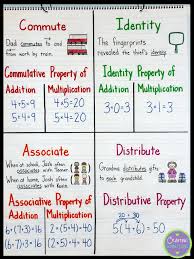 Commute
Dad commutes to and
from work by train.
Commutative Property of
Addition
Multiplication
4+5=9
5+4=9
4×5=20
5×4=20
Identity
The fingerprints
revealed the thief's identity.
Identity Property of
Addition
Multiplication
3+0=3
3×1=3
Associate
When at school, Josh often
associates with Steven.
When at school, Josh often
associates with
Associative Property of
Addition
Multiplication
6+(7+3)=16
(6+7)+3=16
2×(5×4)=40
(2×5)×4=40
Distribute
Grandma distributes gifts
to each grandchild.
Distributive Property
20 + 30
5(4+6)=50